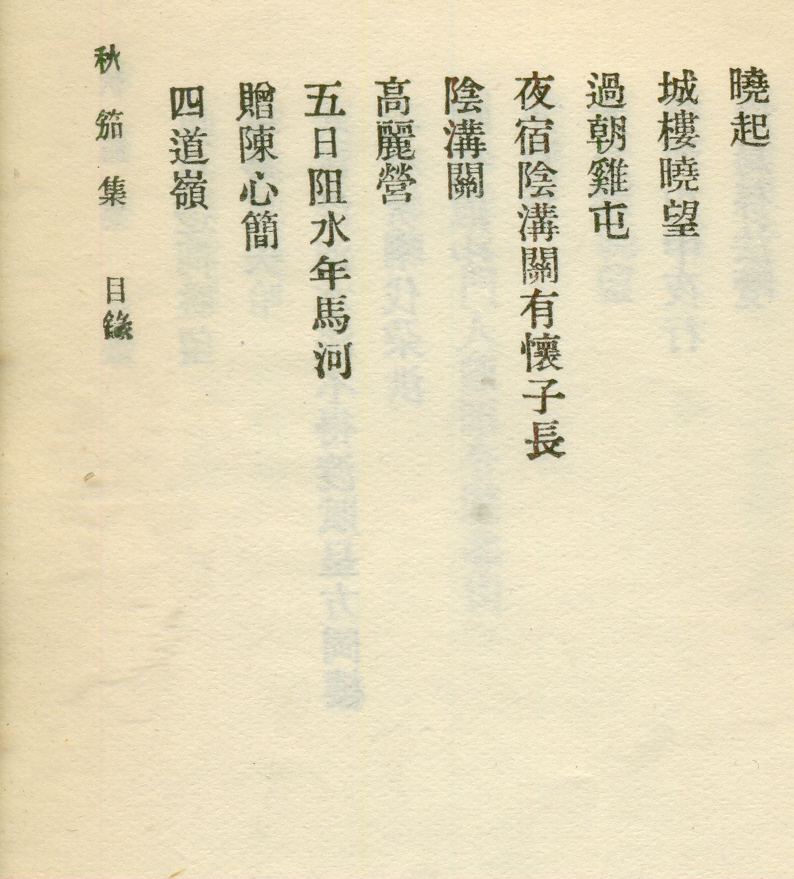 曉起
城樓曉望
過朝雞屯
夜宿陰溝關有懷子長
陰溝關
高麗營
五日阻水年馬河
贈陳心簡
四道嶺
秋笳集 目錄